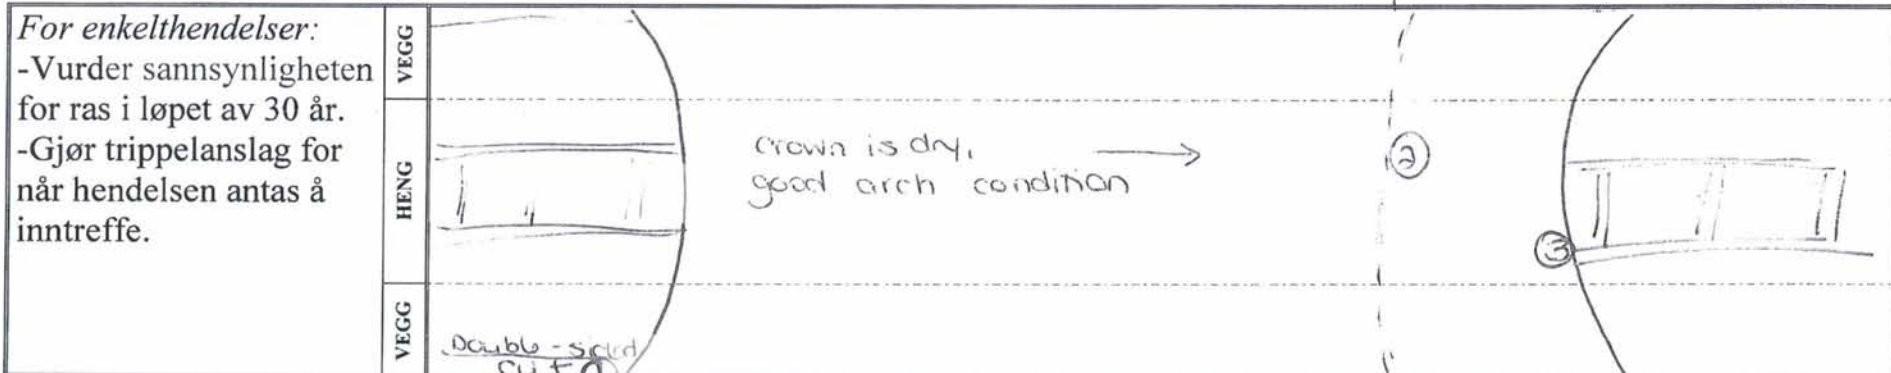 For enkelthendelser:
-Vurder sannsynligheten
for ras i løpet av 30 år.
-Gjør trippelanslag for
når hendelsen antas å
inntreffe.
VEGG
HENG
VEGG
Crown is dry,
good arch condition
2
3
Double-sided
cut